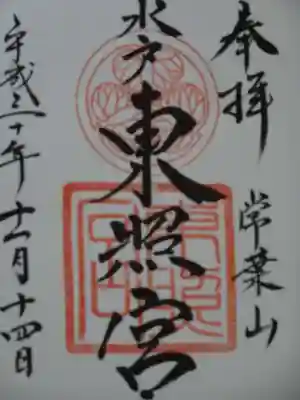 奉拝
常葉山
水戸
東照宮
平成三十年十一月十四日